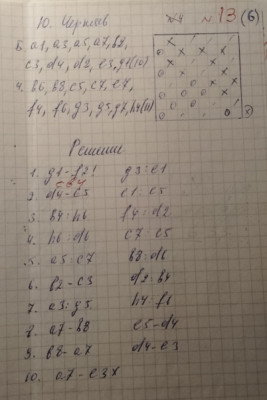 10. Чертав №4 № 13 (6)
Б. a1, a3, a5, a7, b2,
c3, d4, d2, e3, g1 (10)
Ч. b6, b8, c5, c7, e7,
f4, f6, g3, g5, h4 (11)
Решение
1. g1-f2! g3:e1
2. d4-e5 e1:c5
3. b4:h6 f4:d2
4. h6:d6 c7:e5
5. a5:c7 b8:d6
6. b2-c3 d2:b4
7. a3:g5 h4:f6
8. a7-b8 e5-d4
9. b8-a7 d4-e3
10. a7-e3x